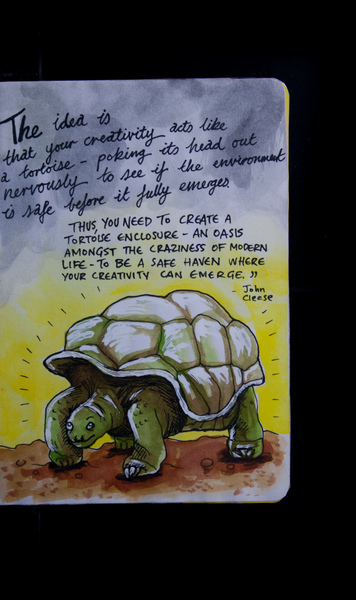 The idea is
that your creativity acts like
a tortoise - poking its head out
nervously to see if the environment
is safe before it fully emerges.
THUS, YOU NEED TO CREATE A
TORTOISE ENCLOSURE - AN OASIS
AMONGST THE CRAZINESS OF MODERN
LIFE - TO BE A SAFE HAVEN WHERE
YOUR CREATIVITY CAN EMERGE.”
- John
Cleese